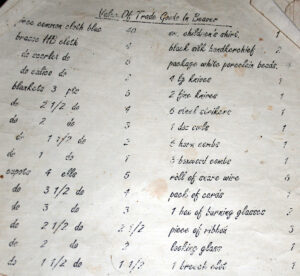 Value Of Trade Goods In Beaver
piece common cloth blue 40
brasso HB cloth
do scarlet do
do calico do 2
blankets 3 pts 8
do 2 1/2 do 4
do 2 do 3
do 1 1/2 do 2
do 1 do 1
capots 4 ells 5
do 3 1/2 do 4
do 3 do 3
do 2 1/2 do 2 1/2
do 2 do 2
do 1 1/2 do 1 1/2
or. children's shirt. 1
black silk handkerchief 2
package white porcelain beads. 1
4 lg knives 1
2 fine knives 1
6 steel strikers 1
1 doz awls 1
6 horn combs 1
3 boxwood combs 1
roll of snare wire 6
pack of cards 1
1 box of burning glasses 2
piece of ribbon 3
looking glass 1
1 breech clout 1